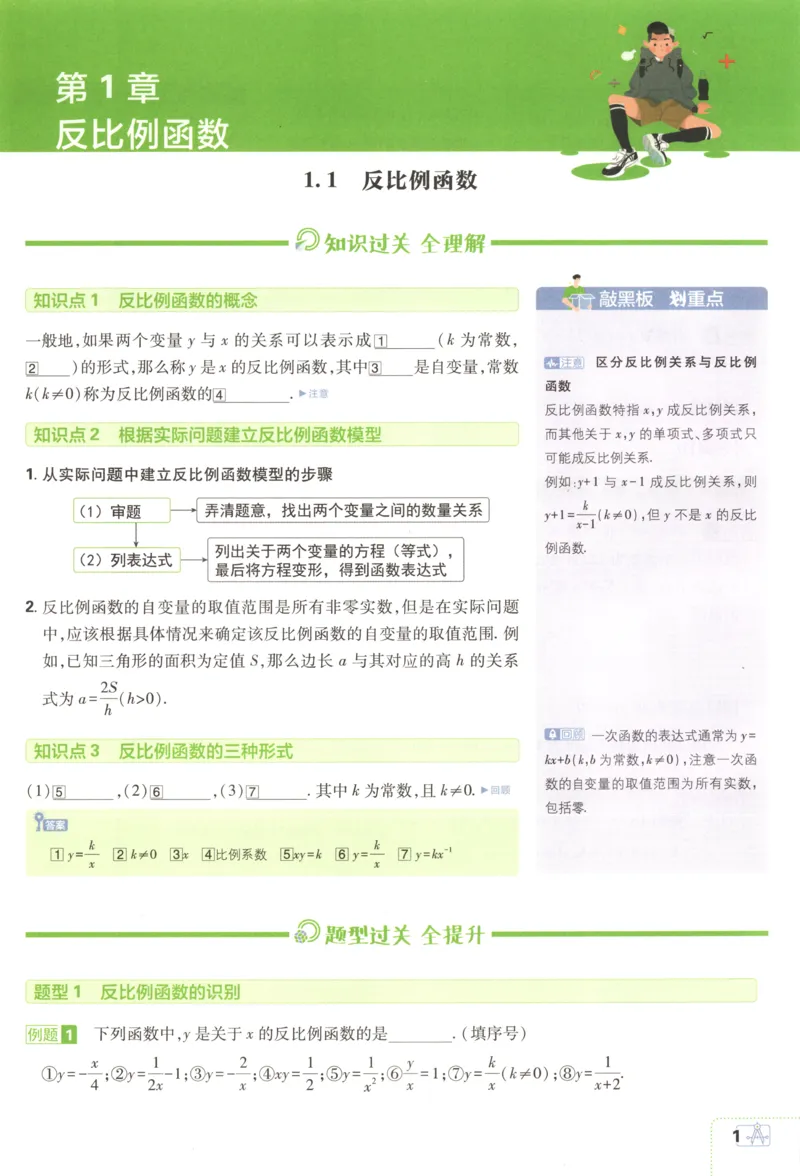 第 1 章
反比例函数
1.1 反比例函数
知识过关 全理解
知识点 1 反比例函数的概念
一般地,如果两个变量 y 与 x 的关系可以表示成1______(k 为常数,
2____)的形式,那么称 y 是 x 的反比例函数,其中3____是自变量,常数
k(k≠0)称为反比例函数的4________. ▶注意
知识点 2 根据实际问题建立反比例函数模型
1. 从实际问题中建立反比例函数模型的步骤
(1) 审题 → 弄清题意，找出两个变量之间的数量关系
(2) 列表达式 → 列出关于两个变量的方程（等式），
最后将方程变形，得到函数表达式
2. 反比例函数的自变量的取值范围是所有非零实数,但是在实际问题
中,应该根据具体情况来确定该反比例函数的自变量的取值范围. 例
如,已知三角形的面积为定值 S,那么边长 a 与其对应的高 h 的关系
式为 a=2S/h(h>0).
知识点 3 反比例函数的三种形式
(1)5______,(2)6______,(3)7______. 其中 k 为常数,且 k≠0. ▶回顾
答案
1 y=k/x 2 k≠0 3 x 4 比例系数 5 xy=k 6 y=k/x 7 y=kx⁻¹
敲黑板 划重点
注意 区分反比例关系与反比例
函数
反比例函数特指 x,y 成反比例关系,
而其他关于 x,y 的单项式、多项式只
可能成反比例关系.
例如:y+1 与 x-1 成反比例关系,则
y+1=k/(x-1)(k≠0),但 y 不是 x 的反比
例函数.
回顾 一次函数的表达式通常为 y=
kx+b(k,b 为常数,k≠0),注意一次函
数的自变量的取值范围为所有实数,
包括零.
题型过关 全提升
题型 1 反比例函数的识别
例题 1 下列函数中,y 是关于 x 的反比例函数的是________. (填序号)
①y=-x/4;②y=1/2x-1;③y=-2/x;④xy=1/2;⑤y=1/x²;⑥y/x=1;⑦y=k/x(k≠0);⑧y=1/(x+2).
1